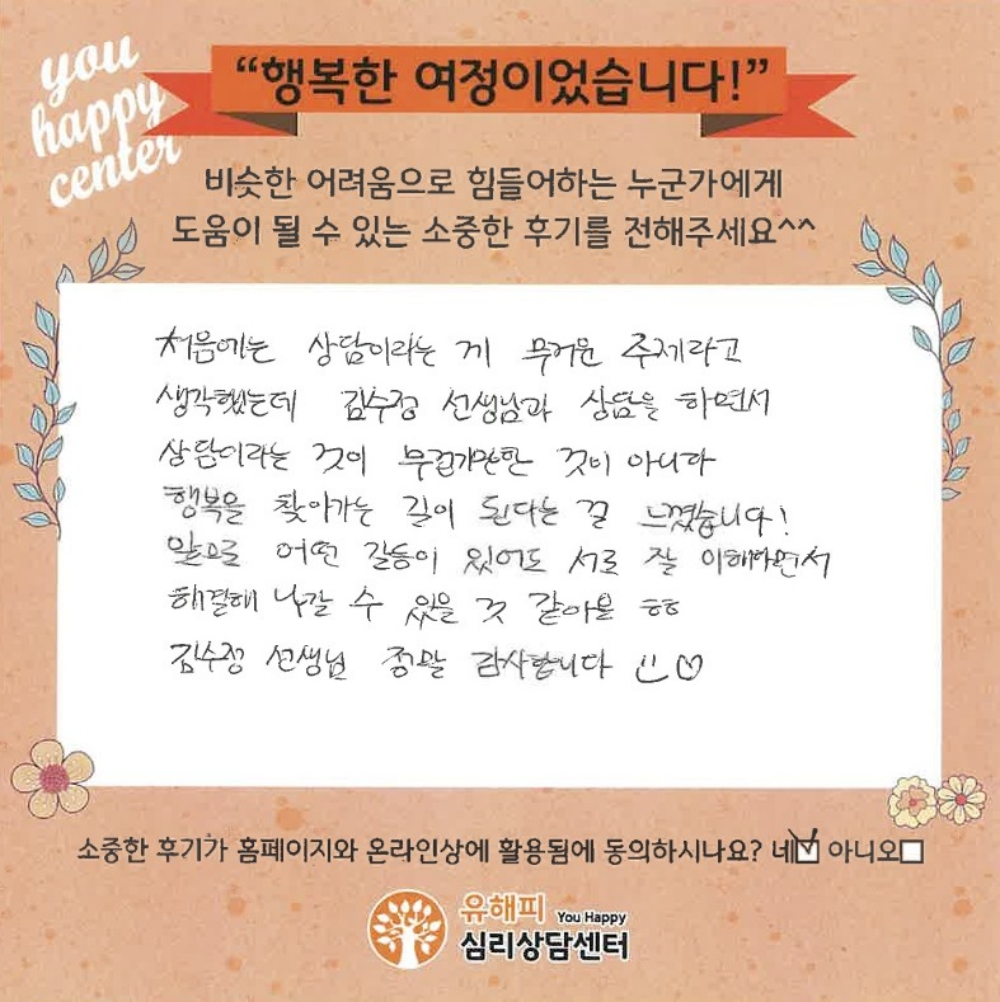 you
happy
center
“행복한 여정이었습니다!”
비슷한 어려움으로 힘들어하는 누군가에게
도움이 될 수 있는 소중한 후기를 전해주세요^^
처음에는 상담이라는 게 무거운 주제라고
생각했는데 김수정 선생님과 상담을 하면서
상담이라는 것이 무겁기만한 것이 아니라
행복을 찾아가는 길이 된다는 걸 느꼈습니다!
앞으로 어떤 갈등이 있어도 서로 잘 이해하면서
해결해 나갈 수 있을 것 같아요 ㅎㅎ
김수정 선생님 정말 감사합니다
소중한 후기가 홈페이지와 온라인상에 활용됨에 동의하시나요? 네☑ 아니오☐
유해피 You Happy
심리상담센터